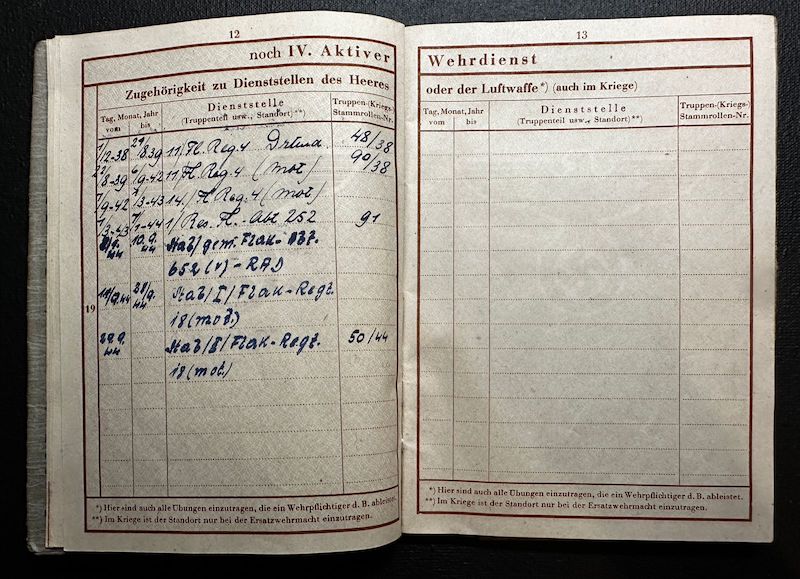 12
noch IV. Aktiver
Zugehörigkeit zu Dienststellen des Heeres
Tag, Monat, Jahr
vom bis
Dienststelle
(Truppenteil usw., Standort) **)
Truppen-(Kriegs-)
Stammrollen-Nr.
1/2-38 8.39 11/Fl. Reg. 4 48/38
8-39 9-42 11/Fl. Reg. 4 (mot) 90/38
7/9-42 3-43 14/Fl. Reg. 4 (mot)
1/3-43 7/1-44 1/Res. Fl.-Abt 252 91
44 10.9.44 Stab/gem. Flak-Abt.
652 (v) - RAD
11/9.44 28/9.44 Stab/I/Flak-Regt.
18 (mot.)
19
29.9.44 Stab/I/Flak-Regt. 50/44
18 (mot.)
*) Hier sind auch alle Übungen einzutragen, die ein Wehrpflichtiger d. B. ableistet.
**) Im Kriege ist der Standort nur bei der Ersatzwehrmacht einzutragen.
13
Wehrdienst
oder der Luftwaffe*) (auch im Kriege)
Tag, Monat, Jahr
vom bis
Dienststelle
(Truppenteil usw., Standort) **)
Truppen-(Kriegs-)
Stammrollen-Nr.
*) Hier sind auch alle Übungen einzutragen, die ein Wehrpflichtiger d. B. ableistet.
**) Im Kriege ist der Standort nur bei der Ersatzwehrmacht einzutragen.